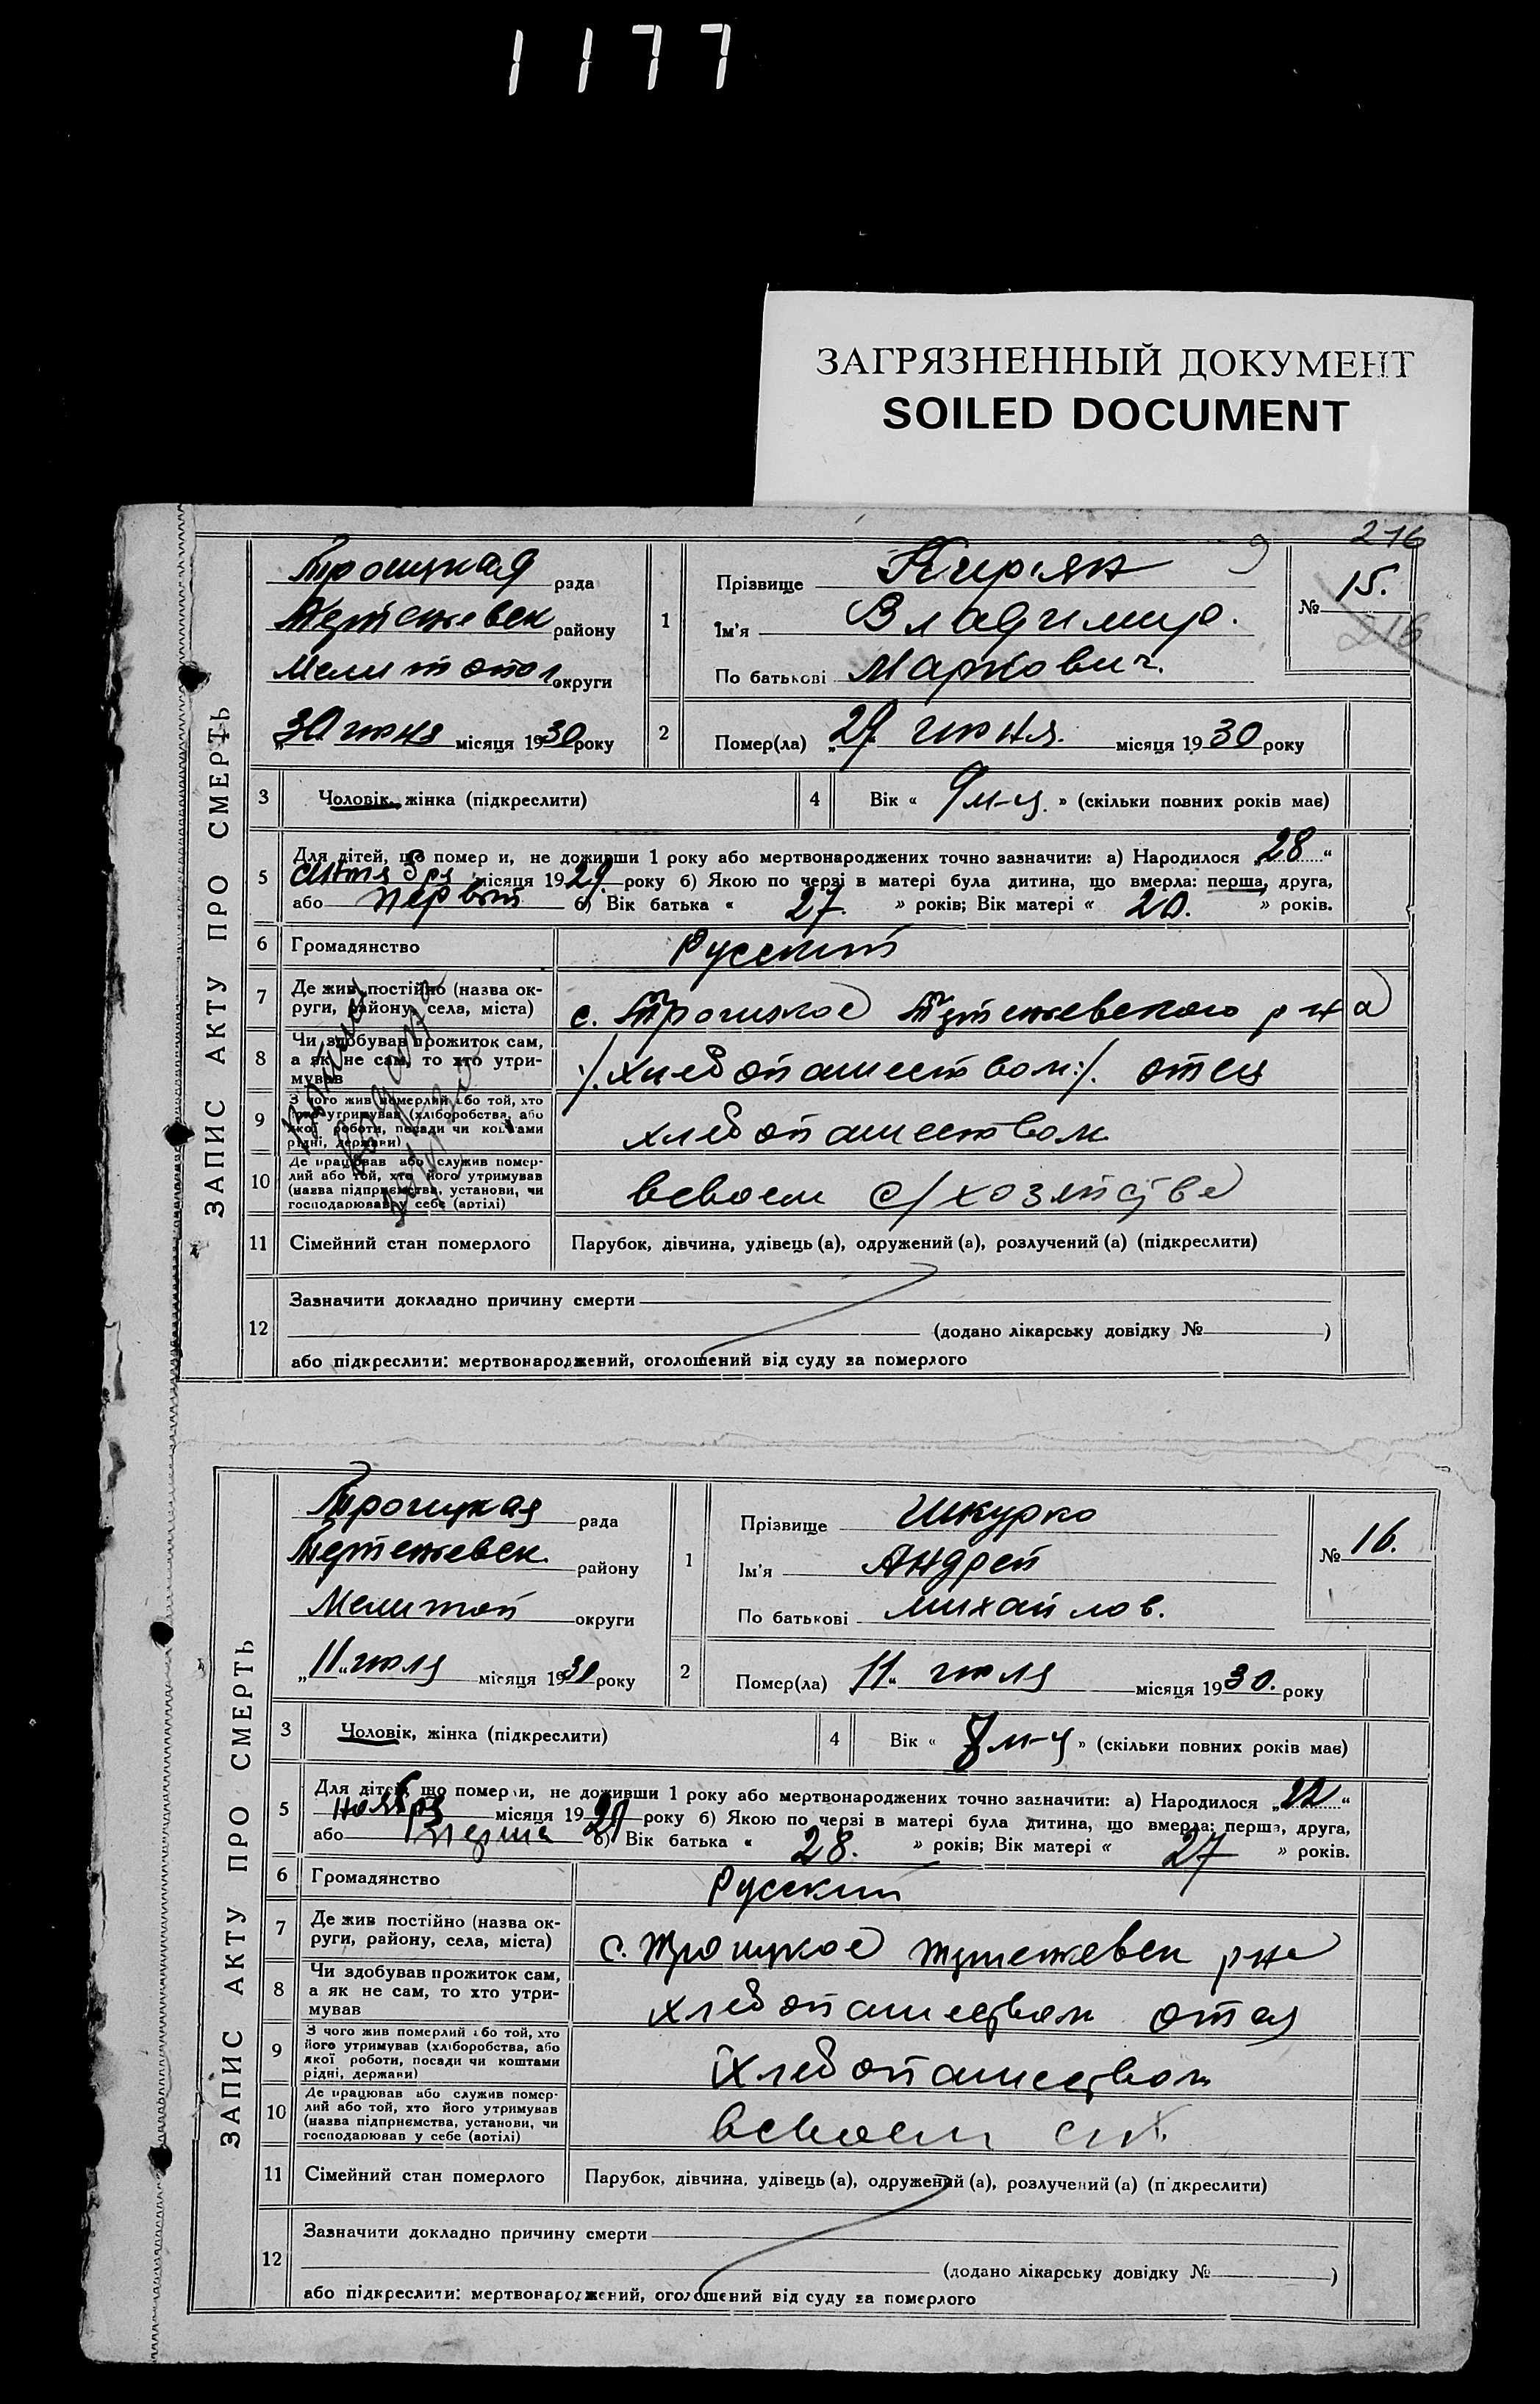 1177
ЗАГРЯЗНЕННЫЙ ДОКУМЕНТ
SOILED DOCUMENT
216
ЗАПИС АКТУ ПРО СМЕРТЬ
Троицкая рада
району
Мелитопол округи
„30 июня місяця 1930 року
1
Прізвище Кирян
Ім'я Владимир.
По батькові Маркович.
№ 15.
216
2
Помер(ла) „29“ июня. місяця 1930 року
3
Чоловік, жінка (підкреслити)
4
Вік « 9 м-ц. » (скільки повних років має)
5
Для дітей, що померли, не доживши 1 року або мертвонароджених точно зазначити: а) Народилося „28“
місяця 1929. року б) Якою по черзі в матері була дитина, що вмерла: перша, друга,
або первый в) Вік батька « 27. » років; Вік матері « 20. » років.
6
Громадянство
Русский
7
Де жив постійно (назва ок-
руги, району, села, міста)
с. Троицкое р-на
8
Чи здобував прожиток сам,
а як не сам, то хто утри-
мував
хлебопашеством отец
9
З чого жив померлий або той, хто
його утримував (хліборобства, або
якої роботи, посади чи коштами
рідні, держави)
хлебопашеством
10
Де працював або служив помер-
лий або той, хто його утримував
(назва підприємства, установи, чи
господарював у себе (артілі)
всвоем с/хозяйстве
11
Сімейний стан померлого
Парубок, дівчина, удівець (а), одружений (а), розлучений (а) (підкреслити)
12
Зазначити докладно причину смерти
(додано лікарську довідку № )
або підкреслити: мертвонароджений, оголошений від суду за померлого
ЗАПИС АКТУ ПРО СМЕРТЬ
Троицкая рада
району
Мелитоп округи
„11“ июля місяця 1930 року
1
Прізвище Шкурко
Ім'я Андрей
По батькові Михайлов.
№ 16.
2
Помер(ла) 11“ июля місяця 1930. року
3
Чоловік, жінка (підкреслити)
4
Вік « 7 м-ц » (скільки повних років має)
5
Для дітей, що померли, не доживши 1 року або мертвонароджених точно зазначити: а) Народилося „22“
ноября місяця 1929 року б) Якою по черзі в матері була дитина, що вмерла: перша, друга,
або перша в) Вік батька « 28. » років; Вік матері « 27 » років.
6
Громадянство
Русский
7
Де жив постійно (назва ок-
руги, району, села, міста)
с. Троицкое р-на
8
Чи здобував прожиток сам,
а як не сам, то хто утри-
мував
хлебопашеством отец
9
З чого жив померлий або той, хто
його утримував (хліборобства, або
якої роботи, посади чи коштами
рідні, держави)
хлебопашеством
10
Де працював або служив помер-
лий або той, хто його утримував
(назва підприємства, установи, чи
господарював у себе (артілі)
всвоем
11
Сімейний стан померлого
Парубок, дівчина, удівець (а), одружений (а), розлучений (а) (підкреслити)
12
Зазначити докладно причину смерти
(додано лікарську довідку № )
або підкреслити: мертвонароджений, оголошений від суду за померлого